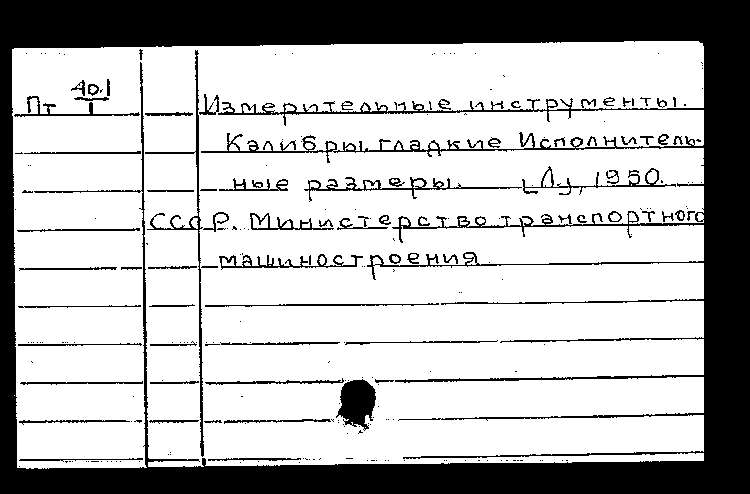 Пт 40.1
I
Измерительные инструменты.
Калибры гладкие Исполнитель-
ные размеры. [Л.], 1950.
СССР. Министерство транспортного
машиностроения